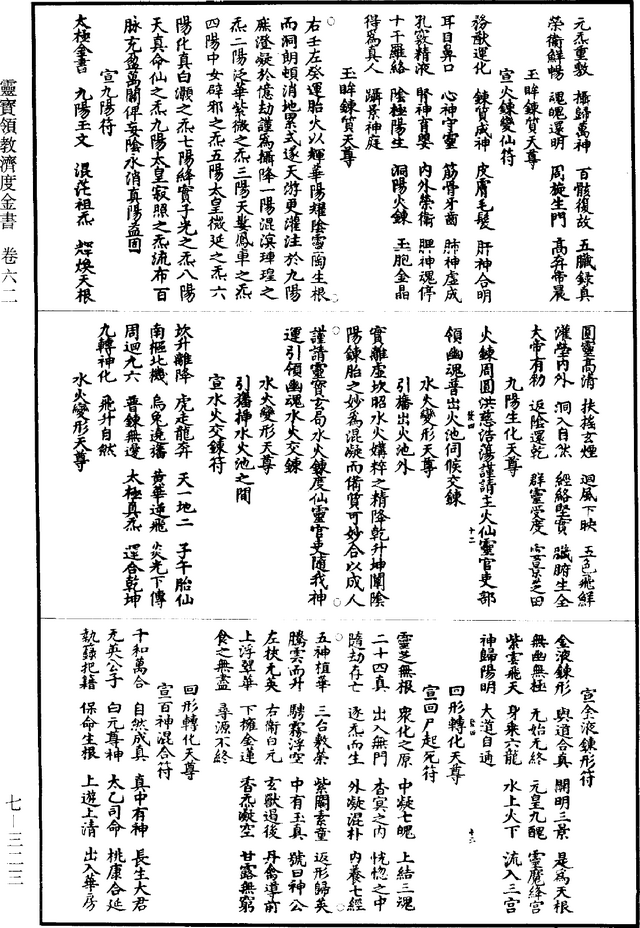 靈寶領教濟度金書 卷六二
七—三二三
元炁重敷 攝歸萬神 百骸復故 五臟録真
榮衛鮮暢 魂魄還明 周旋生門 高奔帝晨
玉眸鍊質天尊
宣火鍊變仙符
務猷運化 鍊質成神 皮膚毛髮 肝神合明
耳目鼻口 心神守靈 筋骨牙齒 肺神虛成
孔竅精液 腎神育嬰 內外榮衛 脾神魂停
十干羅絡 陰極陽生 洞陽火鍊 玉胞金晶
得爲真人 躡景神庭
玉眸鍊質天尊
右壬左癸運胎火以輝華陽耀陰靈陶生根
而洞朗頓消地累式逐天游更灌注於九陽
庶澄凝於億劫謹爲攝降一陽混溟琕瑝之
炁二陽泛華紫微之炁三陽天婁鳳車之炁
四陽中女辟邪之炁五陽太皇微延之炁六
陽化真白灝之炁七陽絳實子光之炁八陽
天真命仙之炁九陽太皇寂照之炁流布百
脉充盈萬關俾妄陰水消真陽益固
宣九陽符
太極金書 九陽玉文 混茫祖炁 輝煥天根
圓靈高清 扶搖玄煙 迴風下映 五色飛鮮
灌瑩內外 洞入自然 經絡堅實 臟腑生全
大帝有勑 返陰還乾 群靈受度 雲景芝田
九陽生化天尊
火鍊周圓洪慈浩蕩謹請主火仙靈官吏部
領幽魂普出火池伺候交鍊
水火變形天尊
引播出火池外
實離虛坎昭水火媾粹之精降乾升坤闡陰
陽鍊胎之妙爲混凝而備質可妙合以成人
謹請靈寶玄局水火鍊度仙靈官吏隨我神
運引領幽魂水火交鍊
水火變形天尊
引播捧水火池之間
宣水火交鍊符
坎升離降 虎走龍奔 天一地二 子午胎仙
南樞北機 烏兔遶旛 黃華逆飛 炎光下傳
周迴九六 普鍊無邊 太極真炁 還合乾坤
九轉神化 飛升自然
水火變形天尊
宣金液鍊形符
金液鍊形 與道合真 開明三景 是爲天根
無幽無極 无始无終 元皇九醜 靈魔絳宮
紫雲飛天 身乘六龍 水上火下 流入三宮
神歸陽明 大道自通
回形轉化天尊
宣回尸起死符
靈芝無根 衆化之原 中凝七魄 上結三魂
二十四真 出入無門 杳冥之內 恍惚之中
隨劫存亡 逐炁而生 外凝混朴 內養七經
五神植華 三合敷榮 紫關素童 返形歸英
騰雲而升 騁霧浮空 中有玉真 號曰神公
左扶无英 右衛白元 玄獸過後 丹禽導前
上浮翠華 下擁金蓮 香炁凝空 甘露無窮
食之無盡 尋源不終
回形轉化天尊
宣百神混合符
千和萬合 自然成真 真中有神 長生大君
元英公子 白元尊神 太乙司命 桃康合延
執符把籍 保命生根 上遊上清 出入華房